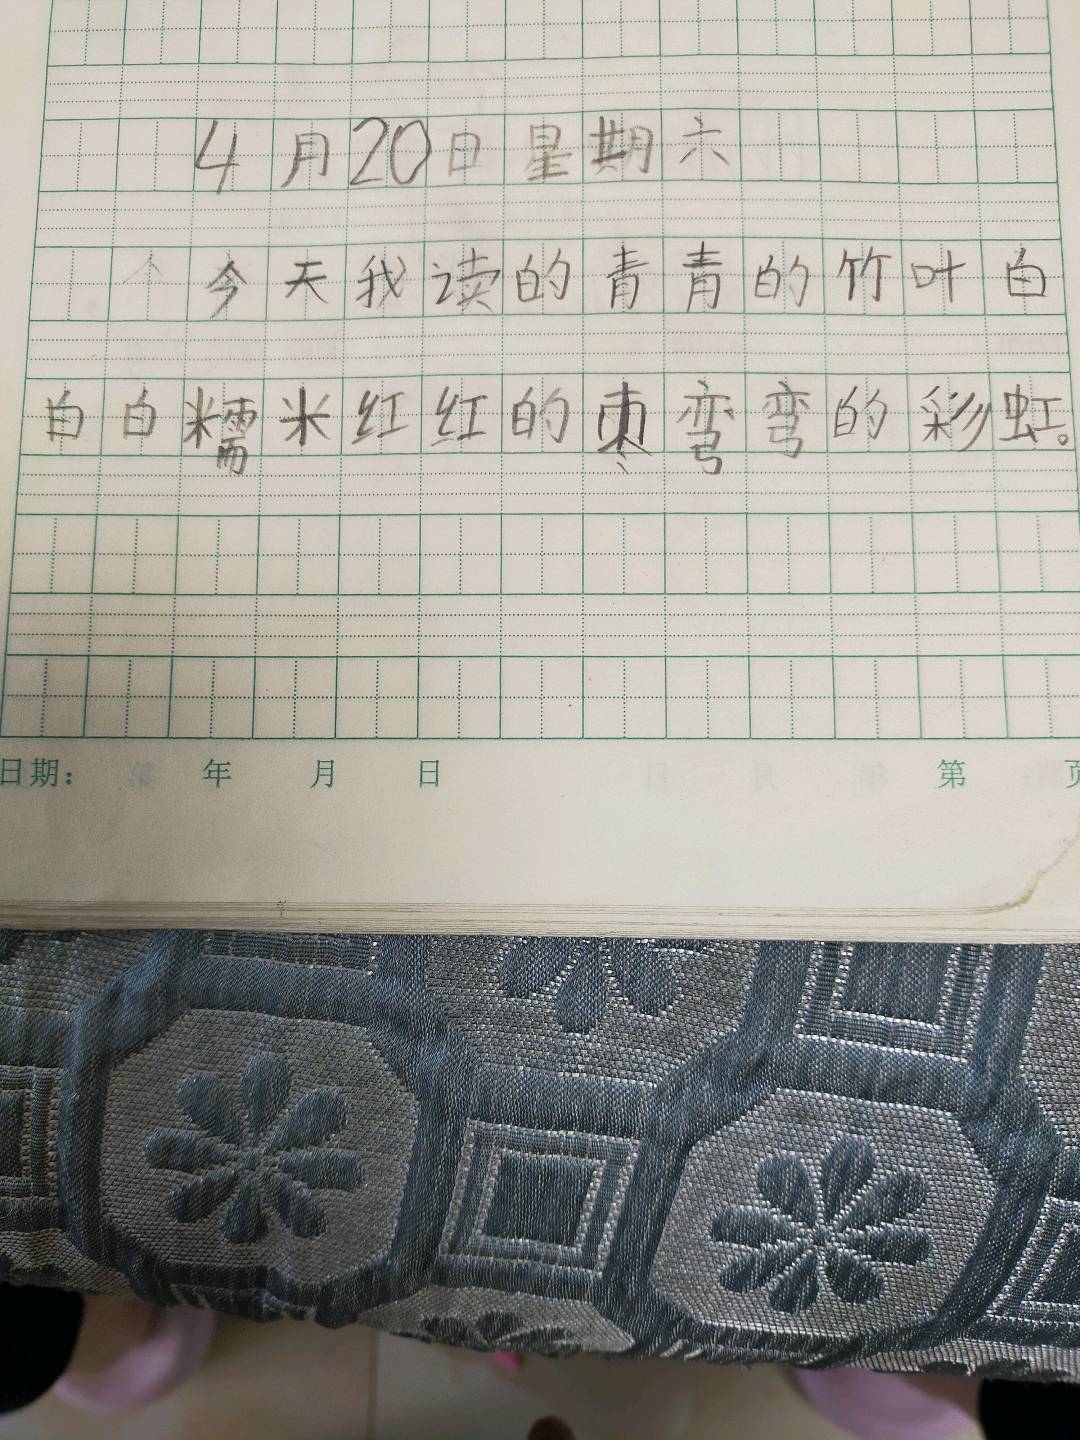 4月20日星期六
今天我读的青青的竹叶白
白白糯米红红的枣弯弯的彩虹。
日期： 年 月 日 第 页